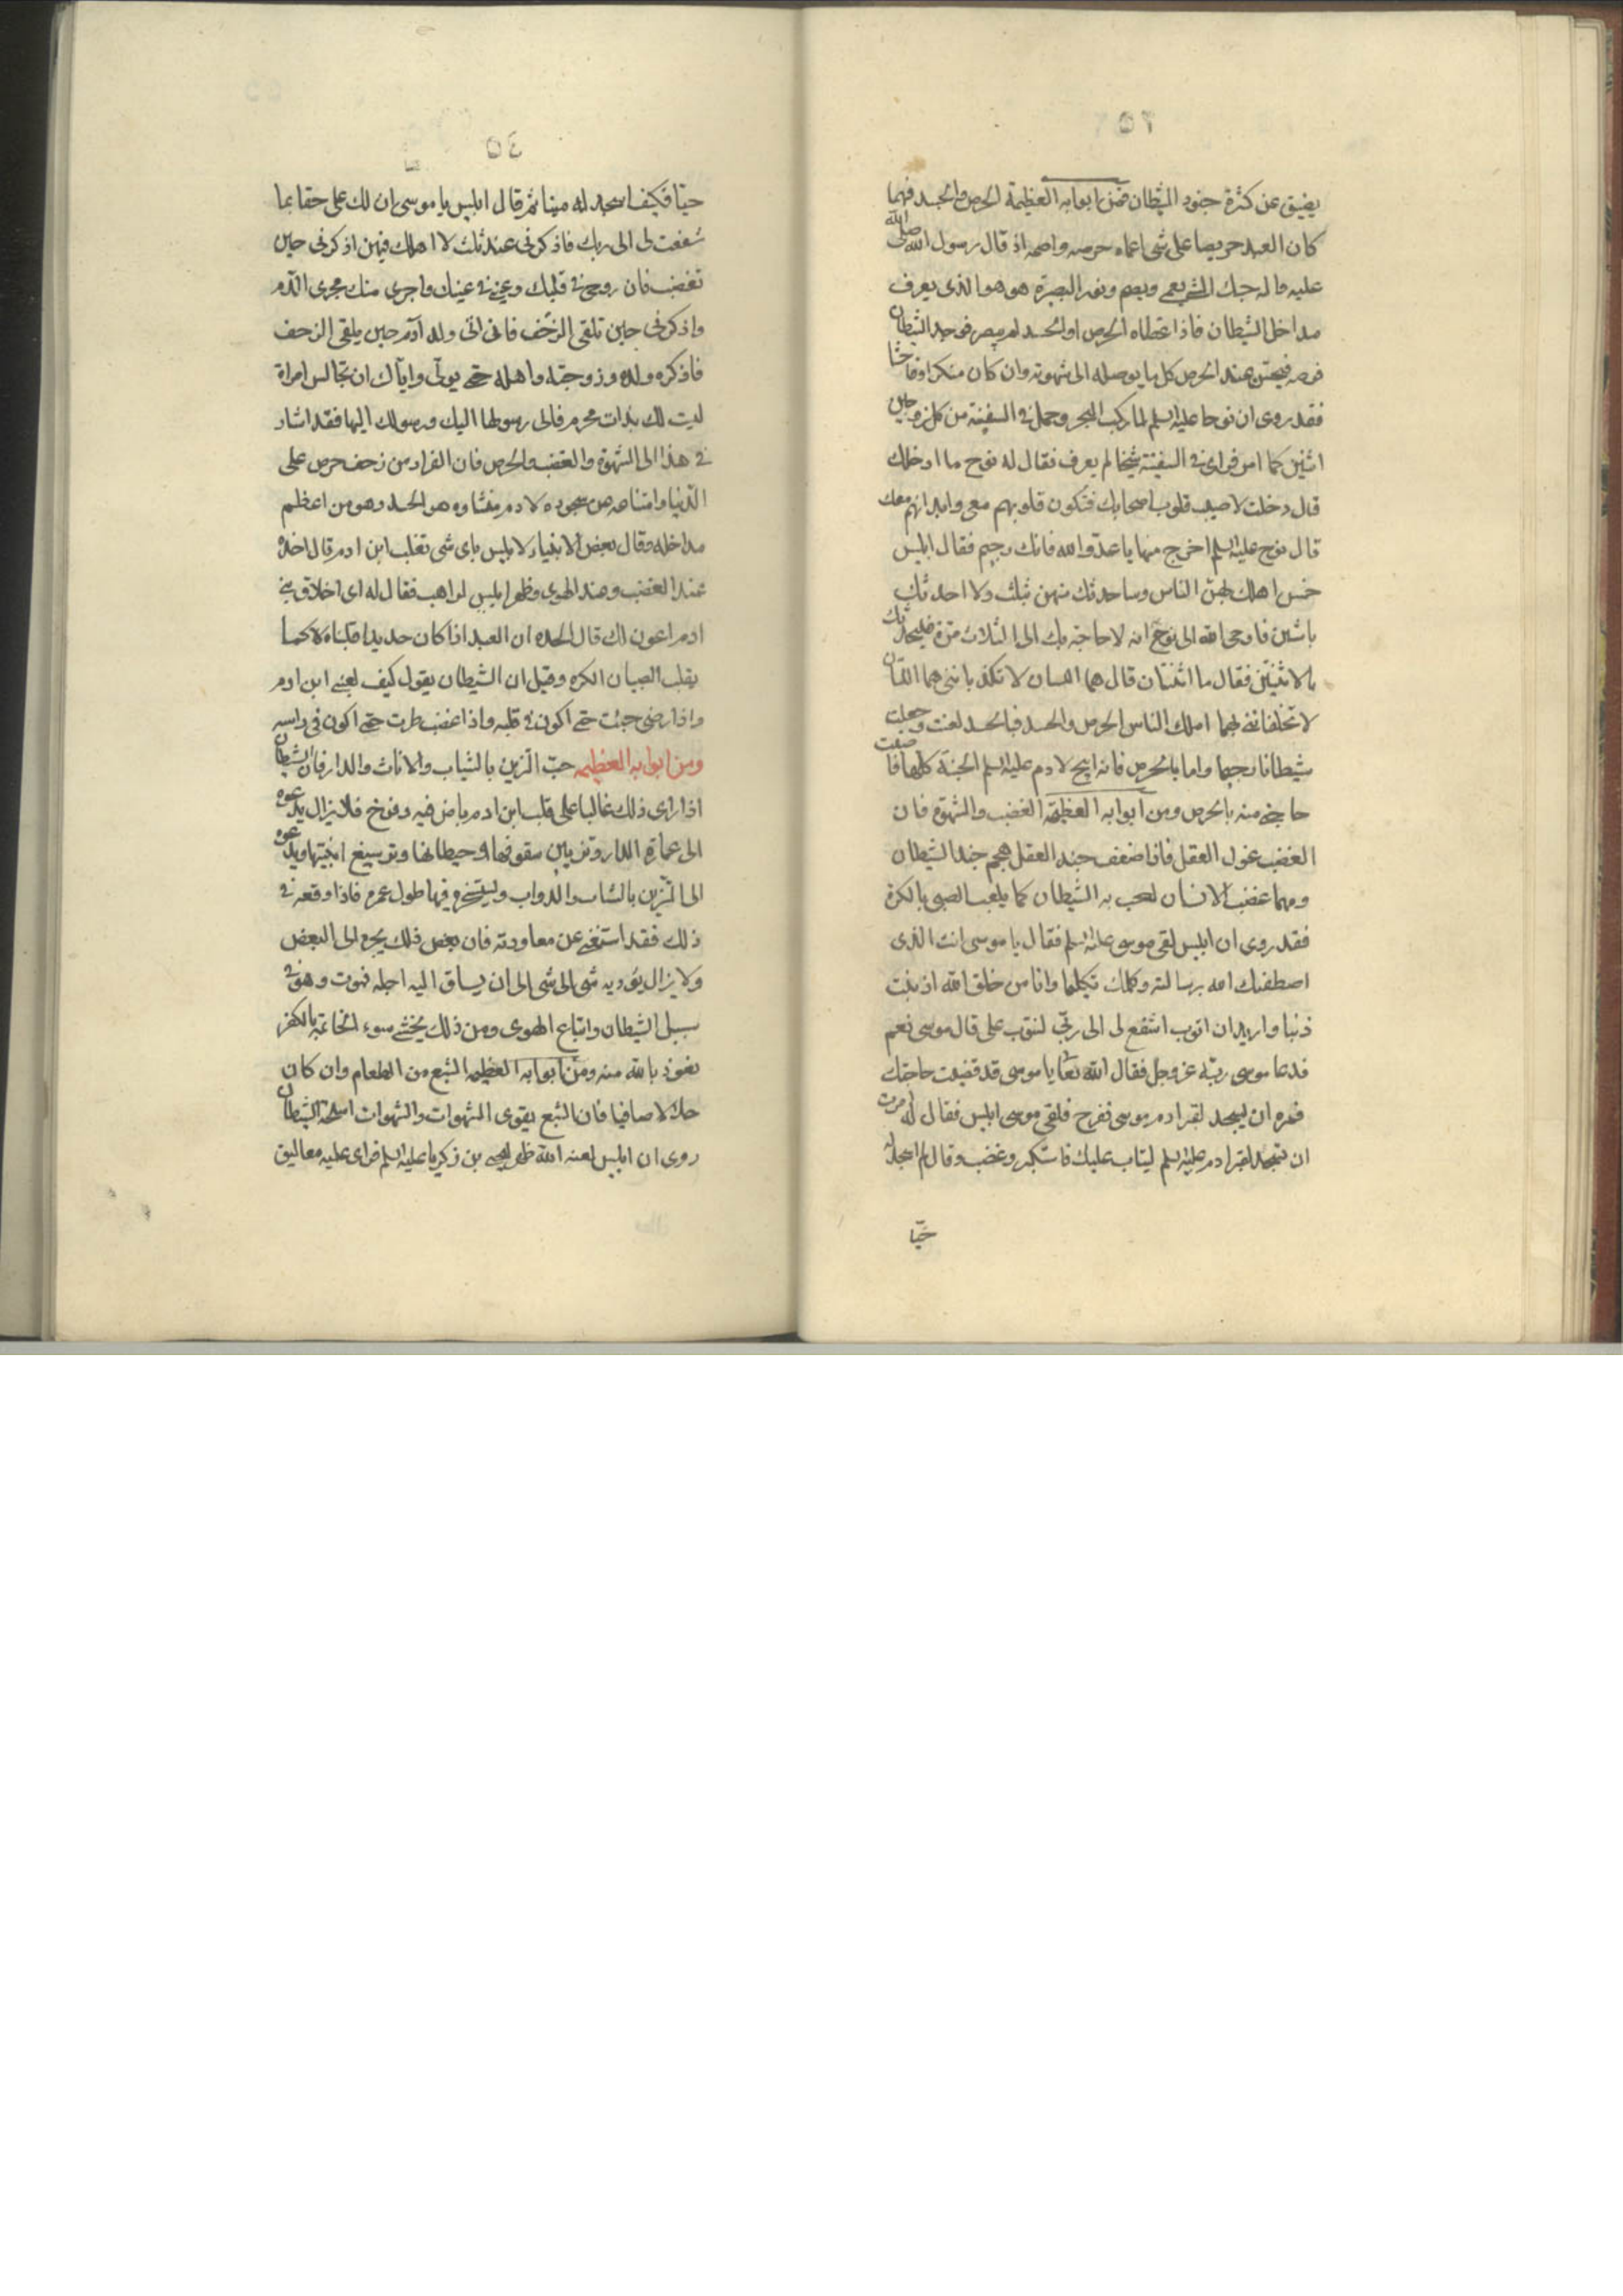 ٥٣
يضيق عن كثرة جنود الشيطان فمن ابوابه العظيمة الحرص والحسد فمهما
كان العبد حريصا على شى اعماه حرصه واصمه اذ قال رسول الله صلى الله
عليه واله حبك الشى يعمى ويصم ونور البصيرة هو الذى يعرف
مداخل الشيطان فاذا غطاه الحرص او الحسد لم يبصر فوجد الشيطان
فرصة فيحسن عند الحرص كل ما يوصله الى شهوته وان كان منكرا وفاحشا
فقد روى ان نوحا عليه السلم لما ركب البحر وحمل فى السفينة من كل زوجين
اثنين كما امر فراى فى السفينة شيخا لم يعرف فقال له نوح ما ادخلك
قال دخلت لاصيب قلوب اصحابك فتكون قلوبهم معى وابدانهم معك
قال نوح عليه السلم اخرج منها يا عدو الله فانك رجيم فقال ابليس
خمس اهلك بهن الناس وساحدثك منهن بثلث ولا احدثك
باثنين فاوحى الله الى نوح انه لا حاجة بك الى الثلاث مره فليحدثك
بالاثنتين فقال ما اثنتان قال هما اللتان لا تكذبانني هما اللتان
لا تخلفاننى بهما اهلك الناس الحرص والحسد فبالحسد لعنت وجعلت
شيطانا رجيما واما بالحرص فانه ابيح لادم عليه السلم الجنة كلها فاصبت
حاجتى منه بالحرص ومن ابوابه العظيمة الغضب والشهوة فان
الغضب غول العقل فاذا ضعف جند العقل هجم جند الشيطان
ومهما غضب الانسان لعب به الشيطان كما يلعب الصبى بالكرة
فقد روى ان ابليس لقى موسى عليه السلم فقال يا موسى انت الذى
اصطفىك الله برسالته وكلمك تكليما وانا من خلق الله اذنبت
ذنبا واريد ان اتوب اشفع لى الى ربى ليتوب على قال موسى نعم
فدعا موسى ربه عز وجل فقال الله تعا يا موسى قد قضيت حاجتك
فمره ان يسجد لقبر ادم موسى ففرح فلقى موسى ابليس فقال له امرت
ان تسجد لقبر ادم عليه السلم ليتاب عليك فاستكبر وغضب وقال لم اسجد له
حيّا
٥٤
حيّا فكيف اسجد له ميتا ثم قال ابليس يا موسى ان لك على حقا بما
شفعت لى الى ربك فاذكرنى عند ثلث لا اهلك فيهن اذكرنى حين
تغضب فان روحى فى قلبك وعينى فى عينك واجرى منك مجرى الدم
واذكرنى حين تلقى الزحف فانى اتى ولد آدم حين يلقى الزحف
فاذكره ولده وزوجته واهله حتى يولى واياك ان تجالس امراة
ليست لك بذات محرم فانى رسولها اليك ورسولك اليها فقد اشار
فى هذا الى الشهوة والغضب والحرص فان الفرار من زحف حرص على
الدنيا وامتناعه من سجوده لادم منشاوه هو الحسد وهو من اعظم
مداخله وقال بعض الانبياء لابليس باى شى تغلب ابن ادم قال اخذه
عند الغضب وعند الهوى وظهر ابليس لراهب فقال له اى اخلاق بنى
ادم اعون لك قال الحدة ان العبد اذا كان حديدا قلبناه كما
يقلب الصبيان الكره وقيل ان الشيطان يقول كيف يغلبنى ابن ادم
واذا رضى جئت حتى اكون فى قلبه واذا غضب طرت حتى اكون فى راسه
ومن ابوابه العظيمه حبّ التزين بالثياب والاثاث والدار فان الشيطان
اذا راى ذلك غالبا على قلب ابن ادم باض فيه وفرخ فلا يزال يدعوه
الى عمارة الدار وتزيين سقوفها وحيطانها وتوسيع ابنيتها ويدعوه
الى التزين بالثياب والدواب ويستسخره فيها طول عمره فاذا وقعه فى
ذلك فقد استغنى عن معاودته فان بعض ذلك يجره الى البعض
ولا يزال يؤديه شى الى شى الى ان يساق اليه اجله فيموت وهو فى
سبيل الشيطان واتباع الهوى ومن ذلك يخشى سوء الخاتمة بالكفر
نعوذ بالله منه ومن ابوابه العظيمه الشبع من الطعام وان كان
حلالا صافيا فان الشبع يقوى الشهوات والشهوات اسلحة الشيطان
روى ان ابليس لعنه الله ظهر ليحيى بن زكريا عليه السلم فراى عليه معاليق